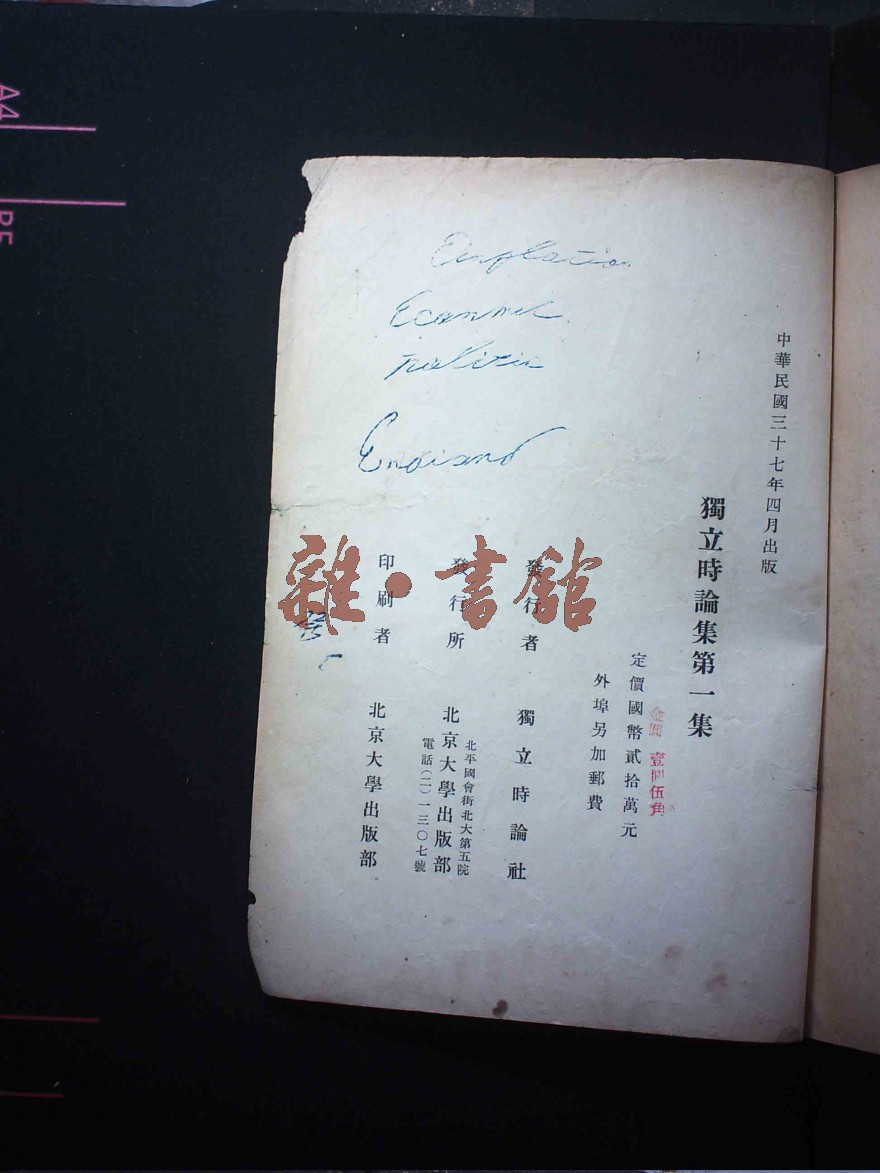 中華民國三十七年四月出版
獨立時論集第一集
金圓 壹圓伍角
定價國幣貳拾萬元
外埠另加郵費
發行者 獨立時論社
發行所 北京大學出版部
北平國會街北大第五院
電話(二)一三〇七號
印刷者 北京大學出版部
雜·書館
A4
B5